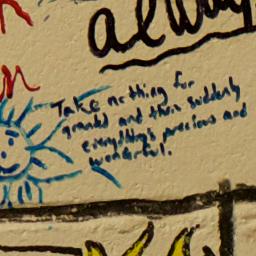 always
Take nothing for
granted and then suddenly
everything's precious and
wonderful.